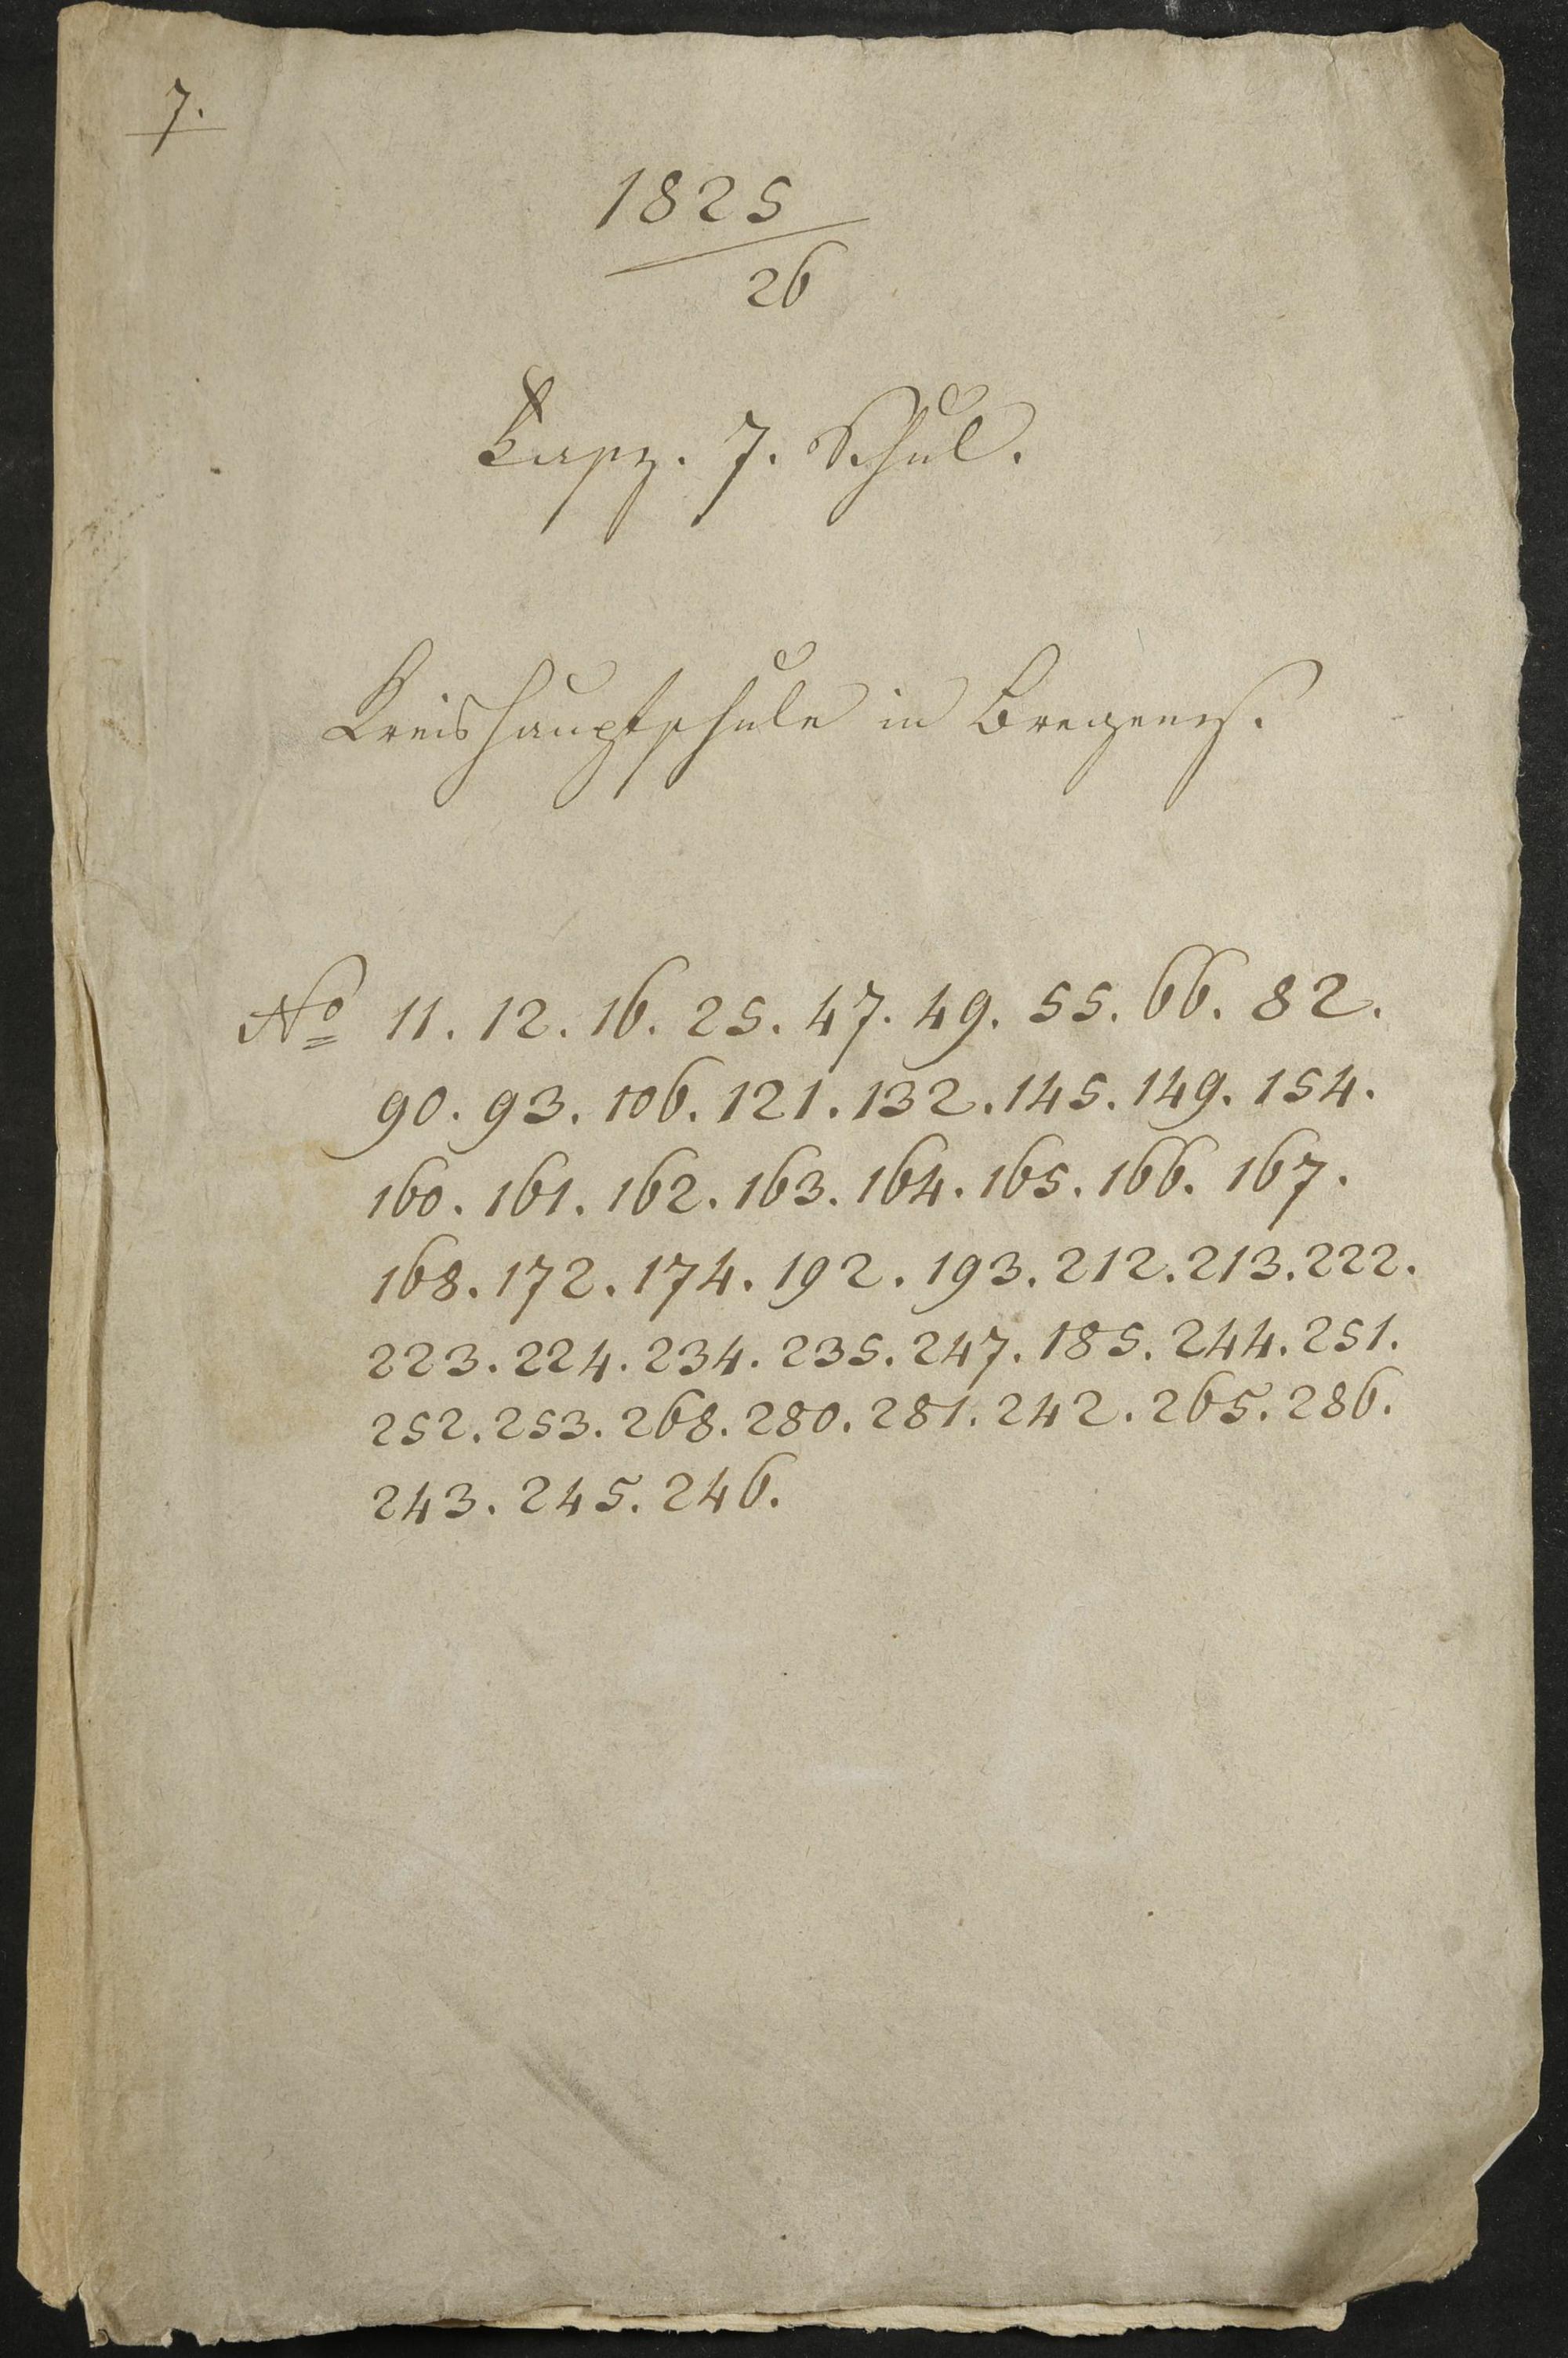 7.
1825
26
Fasz. 7. Schul.
Kreishauptschule in Bregenz.
No 11. 12. 16. 25. 47. 49. 55. 66. 82.
90. 93. 106. 121. 132. 145. 149. 154.
160. 161. 162. 163. 164. 165. 166. 167.
168. 172. 174. 192. 193. 212. 213. 222.
223. 224. 234. 235. 247. 185. 244. 251.
252. 253. 268. 280. 281. 242. 265. 286.
243. 245. 246.